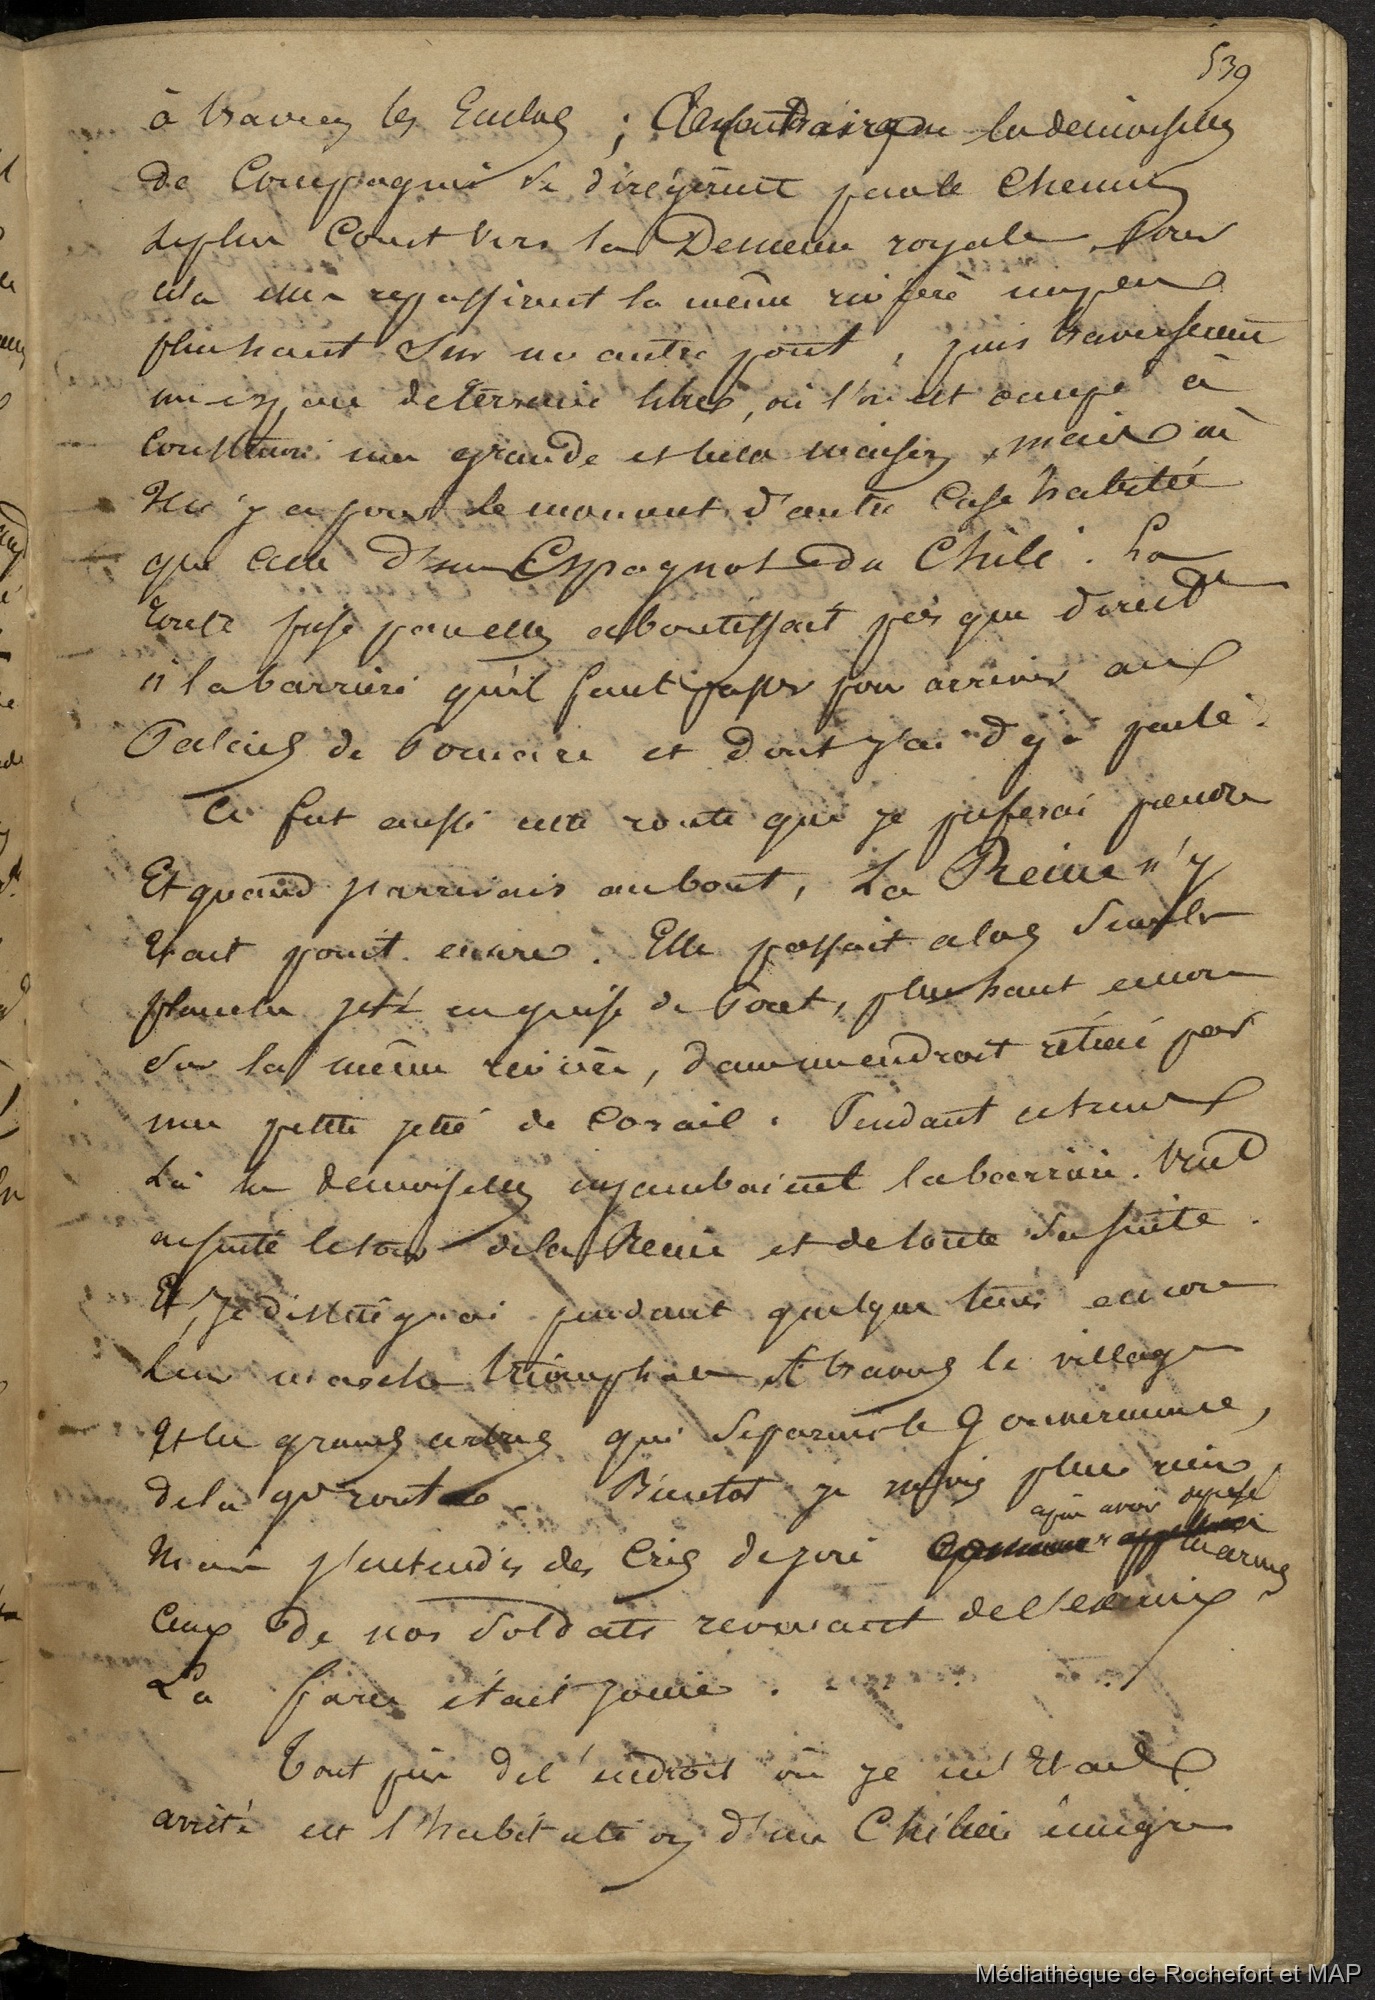 539
à travers les Enclos ; Au contraire que les demoiselles
de Compagnie se dirigèrent par le Chemin
le plus Court vers la Demeure royale. Pour
cela elles repassèrent la même rivière un peu
plus haut sur un autre pont, puis traversèrent
un espace de terrein libre, où l'on est occupé à
Construire une grande et belle maison, mais où
Il n'y a pour le moment d'autre Case habitée
que celle d'un Espagnol du Chili. La
route prise par elles aboutissait presque direct
à la barrière qu'il faut passer pour arriver aux
Palais de Pomaré et dont j'ai déjà parlé.
Ce fut aussi cette route que je préférai prendre
Et quand j'arrivais au bout, La Reine n'y
Etait point encore. Elle passait alors sur les
planches jeté en guise de Pont, plus haut encore
sur la même rivière, dans un endroit rétréci par
une petite jetée de Corail. Pendant ce tems
Là les demoiselles enjambaient la barrière. Vint
ensuite le tour de la Reine et de toute sa suite.
Et Je distinguai pendant quelque tems encore
leur marche triomphale, A travers le village
Et les grands arbres qui séparent le Gouvernement,
de la gde route. Bientot je ne vis plus rien,
Mais j'entendis des Cris de joie après avoir déposé
Ceux de nos soldats revenant de l'exercice
La farce était jouée.
Tout près de l'endroit où je m'Etais
arrêté est l'habitation d'un Chilien émigré
Médiathèque de Rochefort et MAP